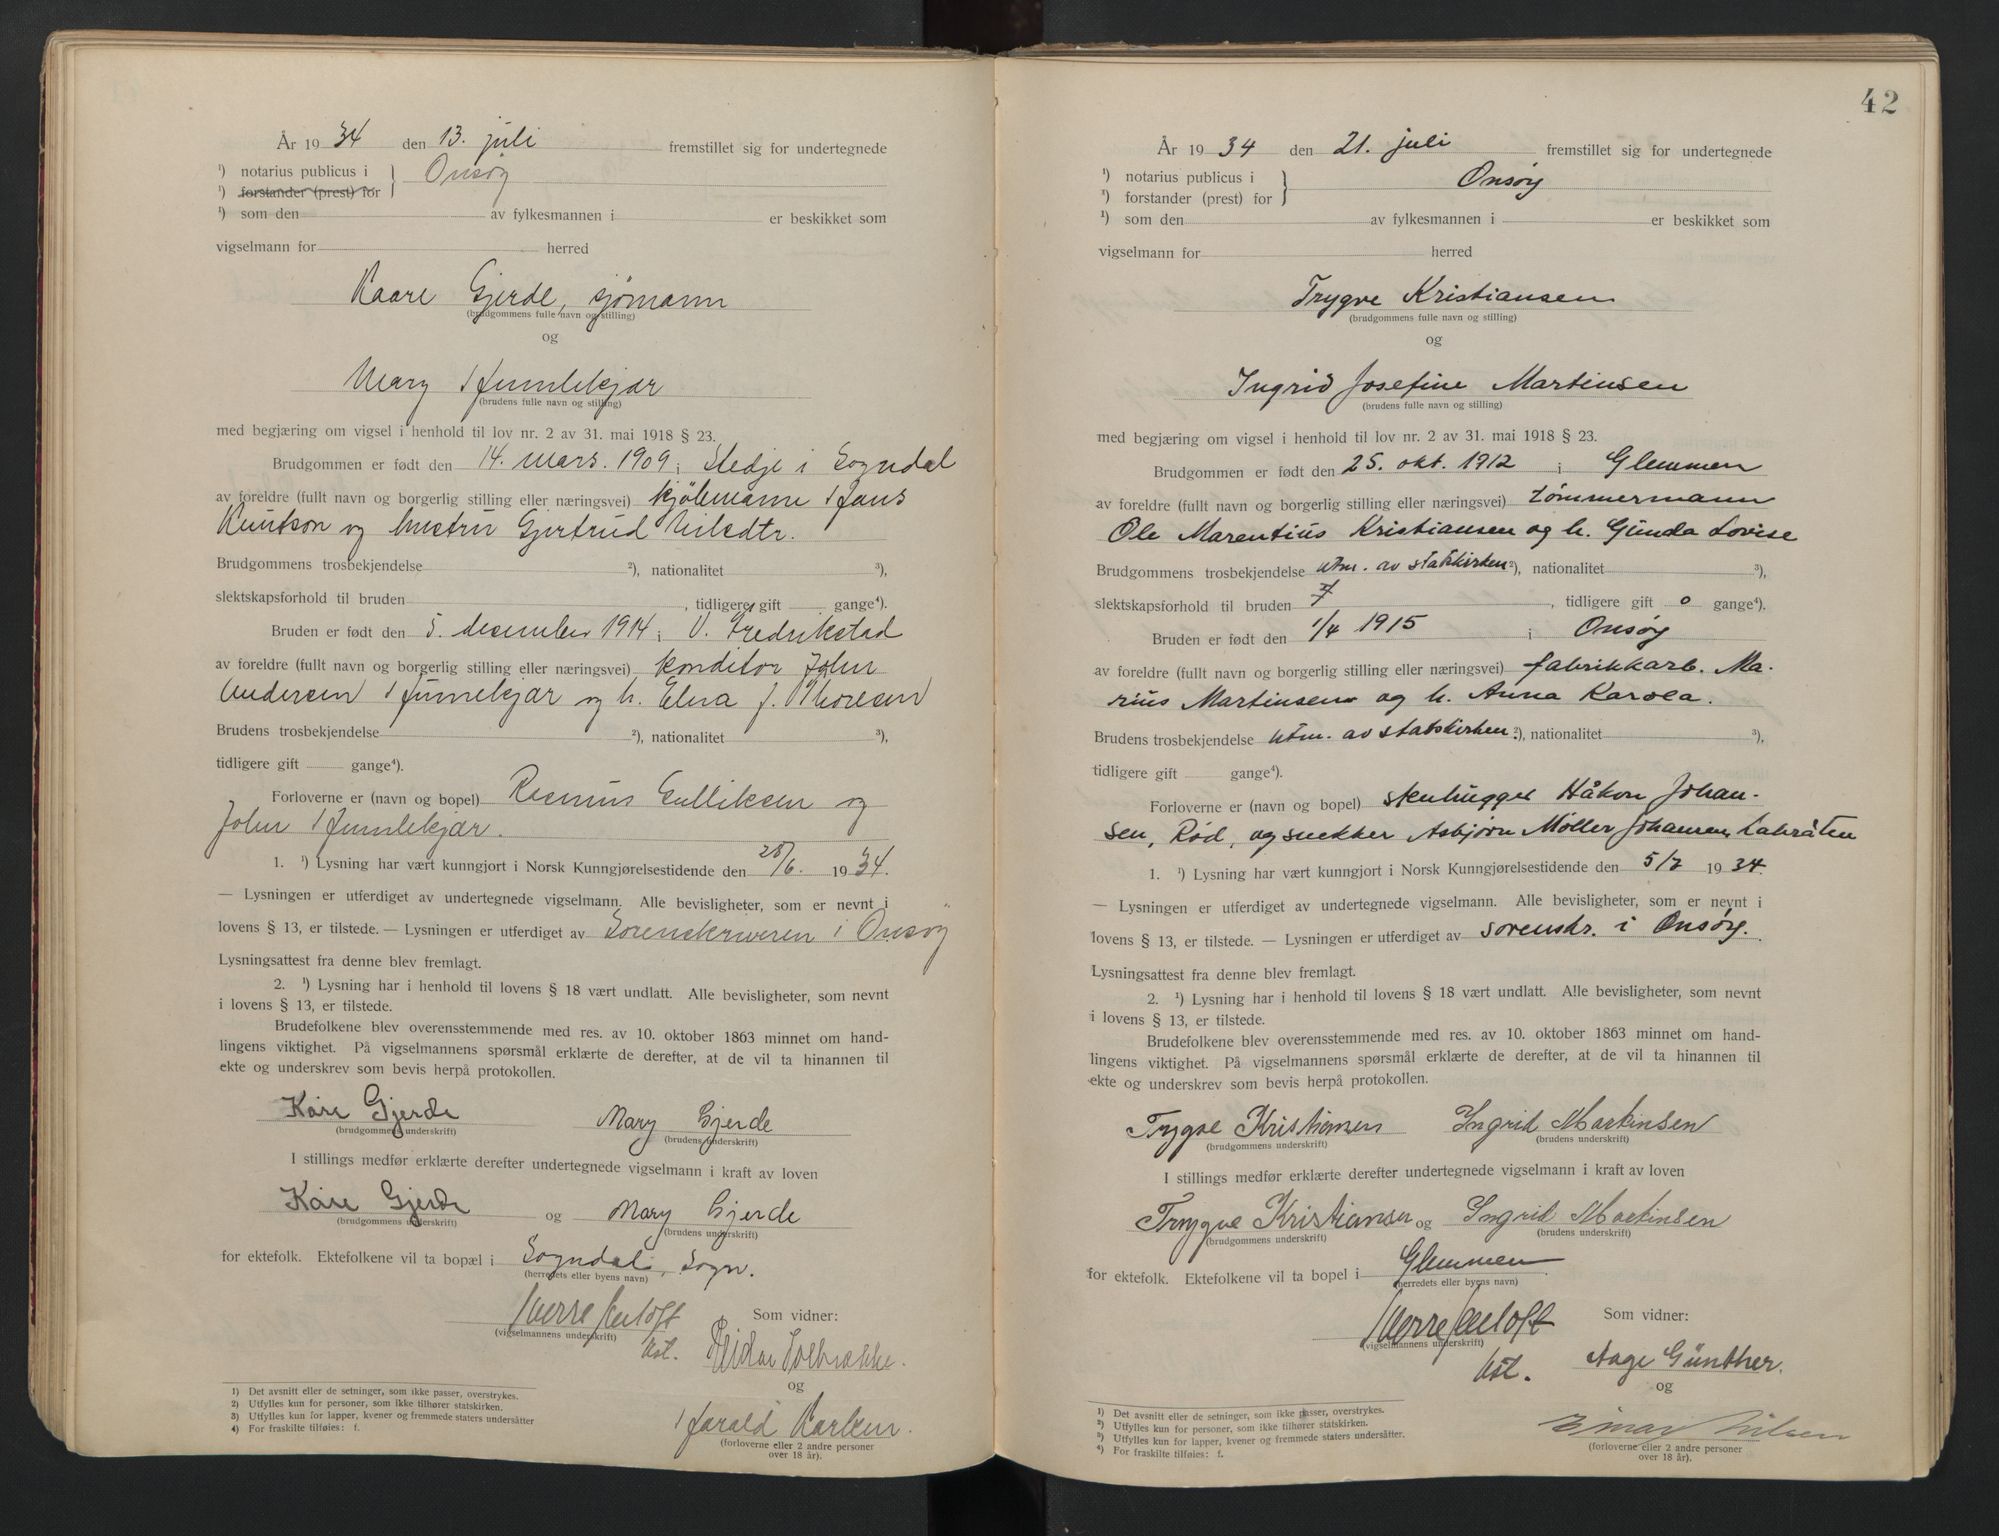 År 1934 den 13. juli fremstillet sig for undertegnede
¹) notarius publicus i } Onsøy
¹) forstander (prest) for
¹) som den av fylkesmannen i er beskikket som
vigselmann for herred
Kaare Gjerde, sjømann
(brudgommens fulle navn og stilling)
og
Mary Humlekjær
(brudens fulle navn og stilling)
med begjæring om vigsel i henhold til lov nr. 2 av 31. mai 1918 § 23.
Brudgommen er født den 14. mars. 1909 i Stedje i Sogndal
av foreldre (fullt navn og borgerlig stilling eller næringsvei) kjølemann Hans
Knutson og hustru Gjertrud Nilsdtr.
Brudgommens trosbekjendelse ²), nationalitet ³),
slektskapsforhold til bruden , tidligere gift gange⁴).
Bruden er født den 5. desember 1914 i V. Fredrikstad
av foreldre (fullt navn og borgerlig stilling eller næringsvei) konditor John
Andersen Humlekjær og h. Elna f. Thoresen
Brudens trosbekjendelse ²), nationalitet ³),
tidligere gift gange⁴).
Forloverne er (navn og bopel) Rasmus Gulliksen og
John Humlekjær.
1. ¹) Lysning har vært kunngjort i Norsk Kunngjørelsestidende den 28/6. 1934.
— Lysningen er utferdiget av undertegnede vigselmann. Alle bevisligheter, som er nevnt i
lovens § 13, er tilstede. — Lysningen er utferdiget av Sorenskriveren i Onsøy
Lysningsattest fra denne blev fremlagt.
2. ¹) Lysning har i henhold til lovens § 18 vært undlatt. Alle bevisligheter, som nevnt
i lovens § 13, er tilstede.
Brudefolkene blev overensstemmende med res. av 10. oktober 1863 minnet om hand-
lingens viktighet. På vigselmannens spørsmål erklærte de derefter, at de vil ta hinannen til
ekte og underskrev som bevis herpå protokollen.
Kåre Gjerde Mary Gjerde
(brudgommens underskrift) (brudens underskrift)
I stillings medfør erklærte derefter undertegnede vigselmann i kraft av loven
Kåre Gjerde og Mary Gjerde
(brudgommens underskrift) (brudens underskrift)
for ektefolk. Ektefolkene vil ta bopæl i Sogndal, Sogn.
(herredets eller byens navn)
Som vidner:
(vigselmannens underskrift)
Kst. Reidar Solbrække.
og
Harald Karlsen.
(forloverne eller 2 andre personer
over 18 år).
1) Det avsnitt eller de setninger, som ikke passer, overstrykes.
2) Utfylles kun for personer, som ikke tilhører statskirken.
3) Utfylles kun for lapper, kvener og fremmede staters undersåtter
4) For fraskilte tilføies: f.
42
År 1934 den 21. juli fremstillet sig for undertegnede
¹) notarius publicus i } Onsøy
¹) forstander (prest) for
¹) som den av fylkesmannen i er beskikket som
vigselmann for herred
Trygve Kristiansen
(brudgommens fulle navn og stilling)
og
Ingrid Josefine Martinsen
(brudens fulle navn og stilling)
med begjæring om vigsel i henhold til lov nr. 2 av 31. mai 1918 § 23.
Brudgommen er født den 25. okt. 1912 i Glemmen
av foreldre (fullt navn og borgerlig stilling eller næringsvei) tømmermann
Ole Marentius Kristiansen og h. Gunda Lovise
Brudgommens trosbekjendelse utm. av statskirken ²), nationalitet ³),
slektskapsforhold til bruden , tidligere gift 0 gange⁴).
Bruden er født den 1/4 1915 i Onsøy
av foreldre (fullt navn og borgerlig stilling eller næringsvei) fabrikkarb. Ma-
rius Martinsen og h. Anna Karola.
Brudens trosbekjendelse utm. av statskirken. ²), nationalitet ³),
tidligere gift gange⁴).
Forloverne er (navn og bopel) stenhugger Håkon Johan-
sen, Rød, og snekker Asbjørn Møller Johansen, Labråten
1. ¹) Lysning har vært kunngjort i Norsk Kunngjørelsestidende den 5/7 1934.
— Lysningen er utferdiget av undertegnede vigselmann. Alle bevisligheter, som er nevnt i
lovens § 13, er tilstede. — Lysningen er utferdiget av sorenskr. i Onsøy.
Lysningsattest fra denne blev fremlagt.
2. ¹) Lysning har i henhold til lovens § 18 vært undlatt. Alle bevisligheter, som nevnt
i lovens § 13, er tilstede.
Brudefolkene blev overensstemmende med res. av 10. oktober 1863 minnet om hand-
lingens viktighet. På vigselmannens spørsmål erklærte de derefter, at de vil ta hinannen til
ekte og underskrev som bevis herpå protokollen.
Trygve Kristiansen Ingrid Martinsen
(brudgommens underskrift) (brudens underskrift)
I stillings medfør erklærte derefter undertegnede vigselmann i kraft av loven
Trygve Kristiansen og Ingrid Martinsen
(brudgommens underskrift) (brudens underskrift)
for ektefolk. Ektefolkene vil ta bopel i Glemmen
(herredets eller byens navn)
Som vidner:
(vigselmannens underskrift)
Kst. Aage Günther.
og
Einar Nilsen
(forloverne eller 2 andre personer
over 18 år).
1) Det avsnitt eller de setninger, som ikke passer, overstrykes.
2) Utfylles kun for personer, som ikke tilhører statskirken.
3) Utfylles kun for lapper, kvener og fremmede staters undersåtter.
4) For fraskilte tilføies: f.